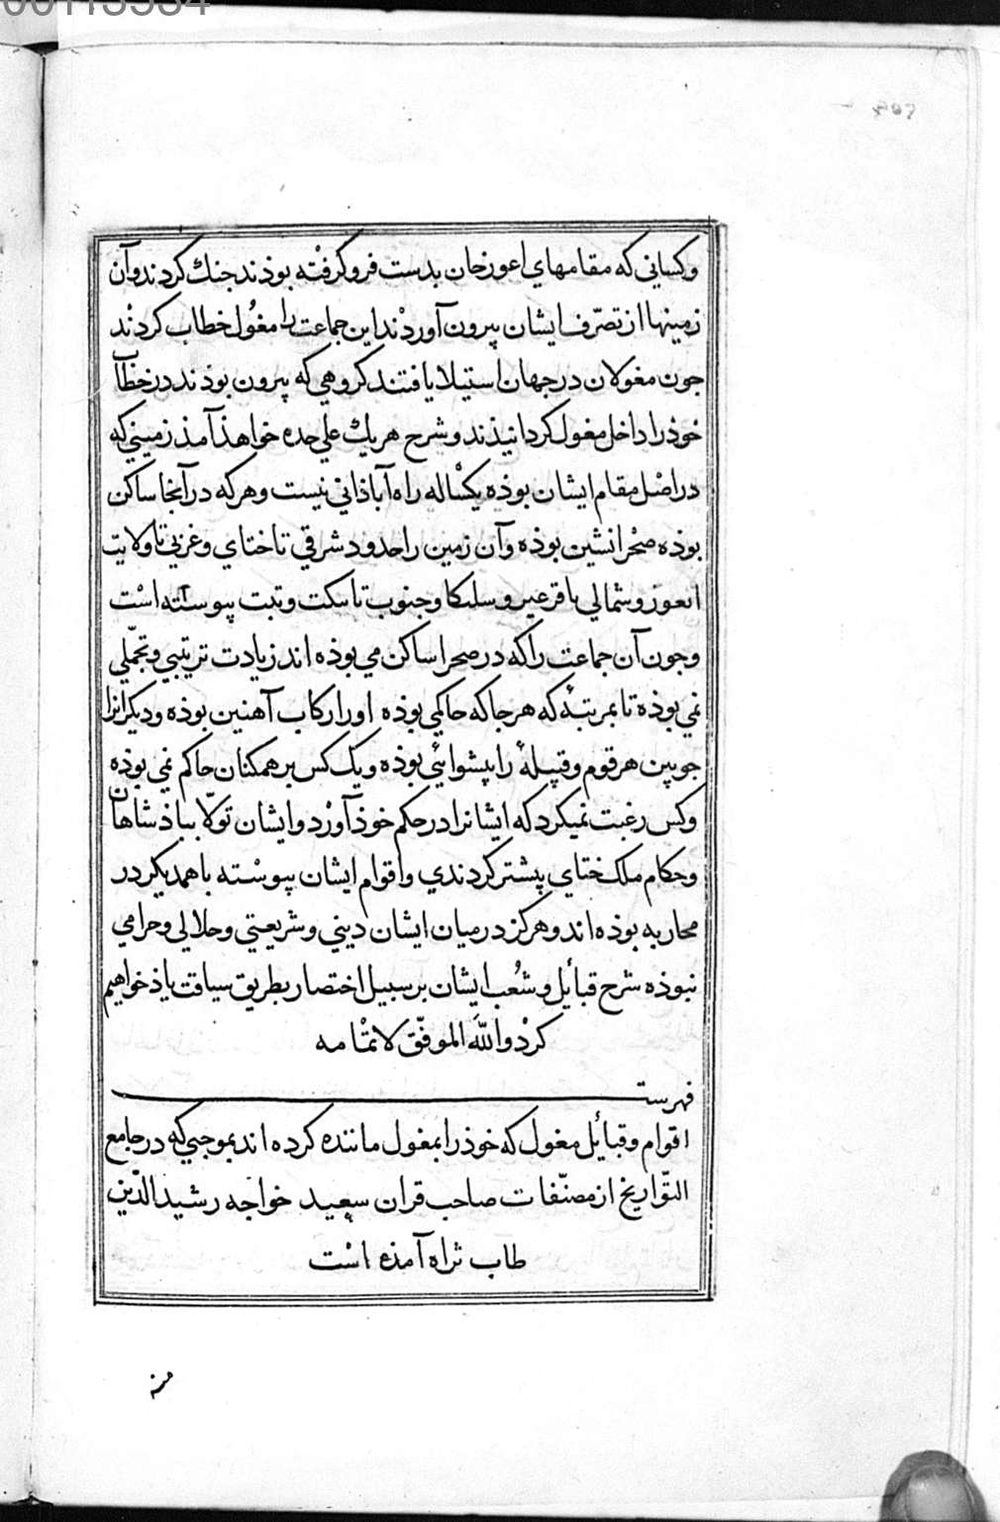 00113554
وكسانی که مقامهاي اعورخان بدست فروكرفته بوذند جنك كردند وآن
زمينها از تصرّف ايشان بيرون آوردند اين جماعت را مغُول خطاب كردند
جون مغولان در جهان استيلا يافتند كروهي كه بيرون بوذند در خطاب
خوذ را داخل مغول كردانيذند و شرح هريك علي حده خواهذ آمذ زميني كه
در اصْل مقام ايشان بوذه يكساله راه آباذاني نيست وهركه در آنجا ساكن
بوذه صحْرانشين بوذه وآن زمين را حدود شرقي تا ختاي وغربي تا ولايت
اىعور وشمالي با قرعير وسلىكا وجنوب تا ىىكت وتبت پيوسته است
وجون آن جماعت را كه در صحرا ساكن مي بوذه اند زيادت ترتيبي وتجمّلي
نمي بوذه تا بمرتبهٔ كه هرجا كه حاكمي بوذه اورا ركاب آهنين بوذه وديكرانرا
جوبين هر قوم وقبيلهٔ را پيشوائي بوذه ويك كس بر همكنان حاكم نمي بوذه
وكس رغبت نميكرد كه ايشانرا در حكم خوذ آورْد وايشان تولّا بباذشاهان
وحكام ملك ختاي پيشتر كردندي واقوام ايشان پيوسْته باهمديكر در
محاربه بوذه اند وهركز در ميان ايشان ديني وشريعتي وحلالي وحرامي
نبوذه شرح قبائل وشُعب ايشان بر سبيل اختصار بطريق سياقت ياذ خواهيم
كرْد والله الموفّق لاتمْامه
فهرست
اقوام وقبائل مغول كه خوذ را بمغول ماننده كرده اند بموجبي كه در جامع
التّواريخ از مصنّفات صاحب قران سعيد خواجه رشيد الدّين
طاب ثراه آمذه است